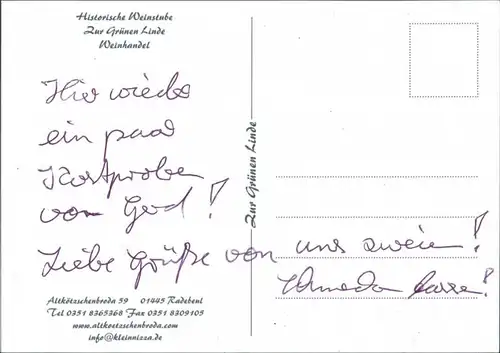 Historische Weinstube
Zur Grünen Linde
Weinhandel
Hier wieder
ein paar
Kostproben
von
Liebe Grüße von uns zweien!
Zur Grünen Linde
Altkötzschenbroda 59 01445 Radebeul
Tel 0351 8365368 Fax 0351 8309105
www.altkoetzschenbroda.com
info@kleinnizza.de